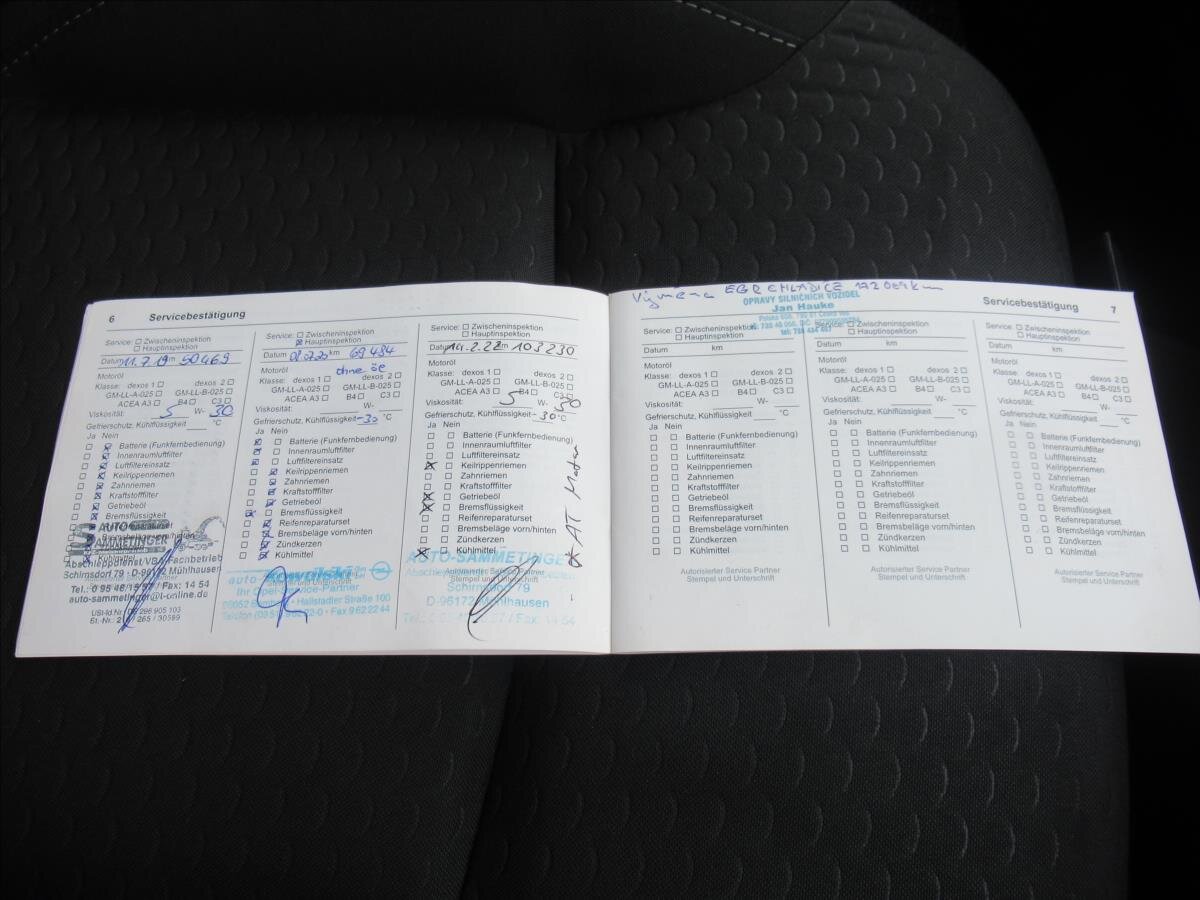 6 Servicebestätigung
Service: Zwischeninspektion
Hauptinspektion
Datum 11.7.19 km 50469
Motoröl
Klasse: dexos 1 dexos 2
GM-LL-A-025 GM-LL-B-025
ACEA A3 B4 C3
Viskosität: 5 W- 30
Gefrierschutz, Kühlflüssigkeit °C
Ja Nein
Batterie (Funkfernbedienung)
Innenraumluftfilter
Luftfiltereinsatz
Keilrippenriemen
Zahnriemen
Kraftstofffilter
Getriebeöl
Bremsflüssigkeit
Bremsbeläge vorn/hinten
Kühlmittel
AUTO
SAMMETINGER
Schirnsdorf 79 - D-96172 Mühlhausen
auto-sammetinger@t-online.de
Service: Zwischeninspektion
Hauptinspektion
Datum km 69484
Motoröl ohne öl
Klasse: dexos 1 dexos 2
GM-LL-A-025 GM-LL-B-025
ACEA A3 B4 C3
Viskosität: W-
Gefrierschutz, Kühlflüssigkeit -30 °C
Ja Nein
Batterie (Funkfernbedienung)
Innenraumluftfilter
Luftfiltereinsatz
Keilrippenriemen
Zahnriemen
Kraftstofffilter
Getriebeöl
Bremsflüssigkeit
Reifenreparaturset
Bremsbeläge vorn/hinten
Zündkerzen
Kühlmittel
Kowalski
Ihr Opel-Service-Partner
Hallstadter Straße 100
Service: Zwischeninspektion
Hauptinspektion
Datum 14.2.22 km 103230
Motoröl
Klasse: dexos 1 dexos 2
GM-LL-A-025 GM-LL-B-025
ACEA A3 B4 C3
Viskosität: 5 W- 30
Gefrierschutz, Kühlflüssigkeit -30 °C
Ja Nein
Batterie (Funkfernbedienung)
Innenraumluftfilter
Luftfiltereinsatz
Keilrippenriemen
Zahnriemen
Kraftstofffilter
Getriebeöl
Bremsflüssigkeit
Reifenreparaturset
Bremsbeläge vorn/hinten
Zündkerzen
Kühlmittel
AT Motor
AUTO-SAMMETINGER
Autorisierter Service Partner
Stempel und Unterschrift
Schirnsdorf 79
D-96172 Mühlhausen
Výměna EGR CHLADIČE 172064 km
OPRAVY SILNIČNÍCH VOZIDEL
Jan Hauke
Servicebestätigung 7
Service: Zwischeninspektion
Hauptinspektion
Datum km
Motoröl
Klasse: dexos 1 dexos 2
GM-LL-A-025 GM-LL-B-025
ACEA A3 B4 C3
Viskosität: W-
Gefrierschutz, Kühlflüssigkeit °C
Ja Nein
Batterie (Funkfernbedienung)
Innenraumluftfilter
Luftfiltereinsatz
Keilrippenriemen
Zahnriemen
Kraftstofffilter
Getriebeöl
Bremsflüssigkeit
Reifenreparaturset
Bremsbeläge vorn/hinten
Zündkerzen
Kühlmittel
Autorisierter Service Partner
Stempel und Unterschrift
Service: Zwischeninspektion
Hauptinspektion
Datum km
Motoröl
Klasse: dexos 1 dexos 2
GM-LL-A-025 GM-LL-B-025
ACEA A3 B4 C3
Viskosität: W-
Gefrierschutz, Kühlflüssigkeit °C
Ja Nein
Batterie (Funkfernbedienung)
Innenraumluftfilter
Luftfiltereinsatz
Keilrippenriemen
Zahnriemen
Kraftstofffilter
Getriebeöl
Bremsflüssigkeit
Reifenreparaturset
Bremsbeläge vorn/hinten
Zündkerzen
Kühlmittel
Autorisierter Service Partner
Stempel und Unterschrift
Service: Zwischeninspektion
Hauptinspektion
Datum km
Motoröl
Klasse: dexos 1 dexos 2
GM-LL-A-025 GM-LL-B-025
ACEA A3 B4 C3
Viskosität: W-
Gefrierschutz, Kühlflüssigkeit °C
Ja Nein
Batterie (Funkfernbedienung)
Innenraumluftfilter
Luftfiltereinsatz
Keilrippenriemen
Zahnriemen
Kraftstofffilter
Getriebeöl
Bremsflüssigkeit
Reifenreparaturset
Bremsbeläge vorn/hinten
Zündkerzen
Kühlmittel
Autorisierter Service Partner
Stempel und Unterschrift